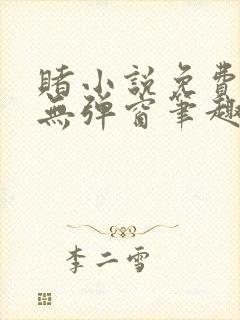 賭小説免費
無彈窗筆趣
李二雪